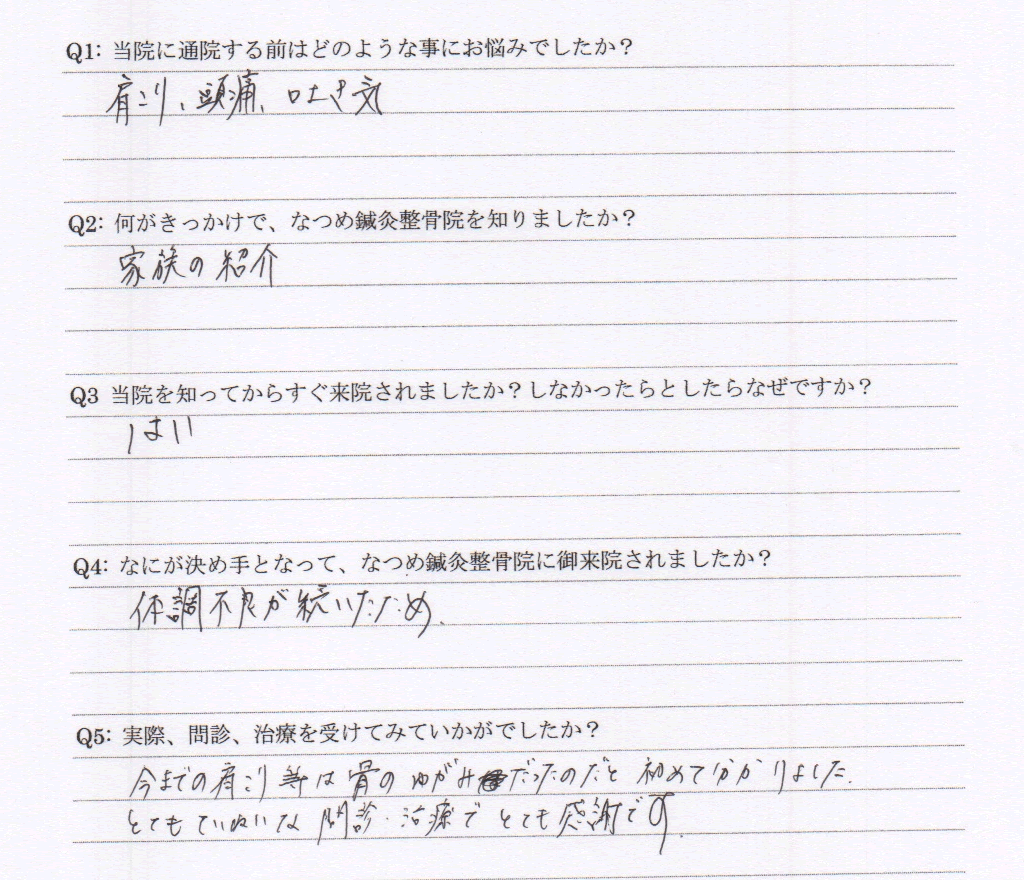 Q1: 当院に通院する前はどのような事にお悩みでしたか？
肩こり、頭痛、吐き気
Q2: 何がきっかけで、なつめ鍼灸整骨院を知りましたか？
家族の紹介
Q3 当院を知ってからすぐ来院されましたか？しなかったらとしたらなぜですか？
はい
Q4: なにが決め手となって、なつめ鍼灸整骨院に御来院されましたか？
体調不良が続いたため.
Q5: 実際、問診、治療を受けてみていかがでしたか？
今までの肩こり等は骨のゆがみだったのだと初めて分かりました.
とてもていねいな問診・治療でとても感謝です.